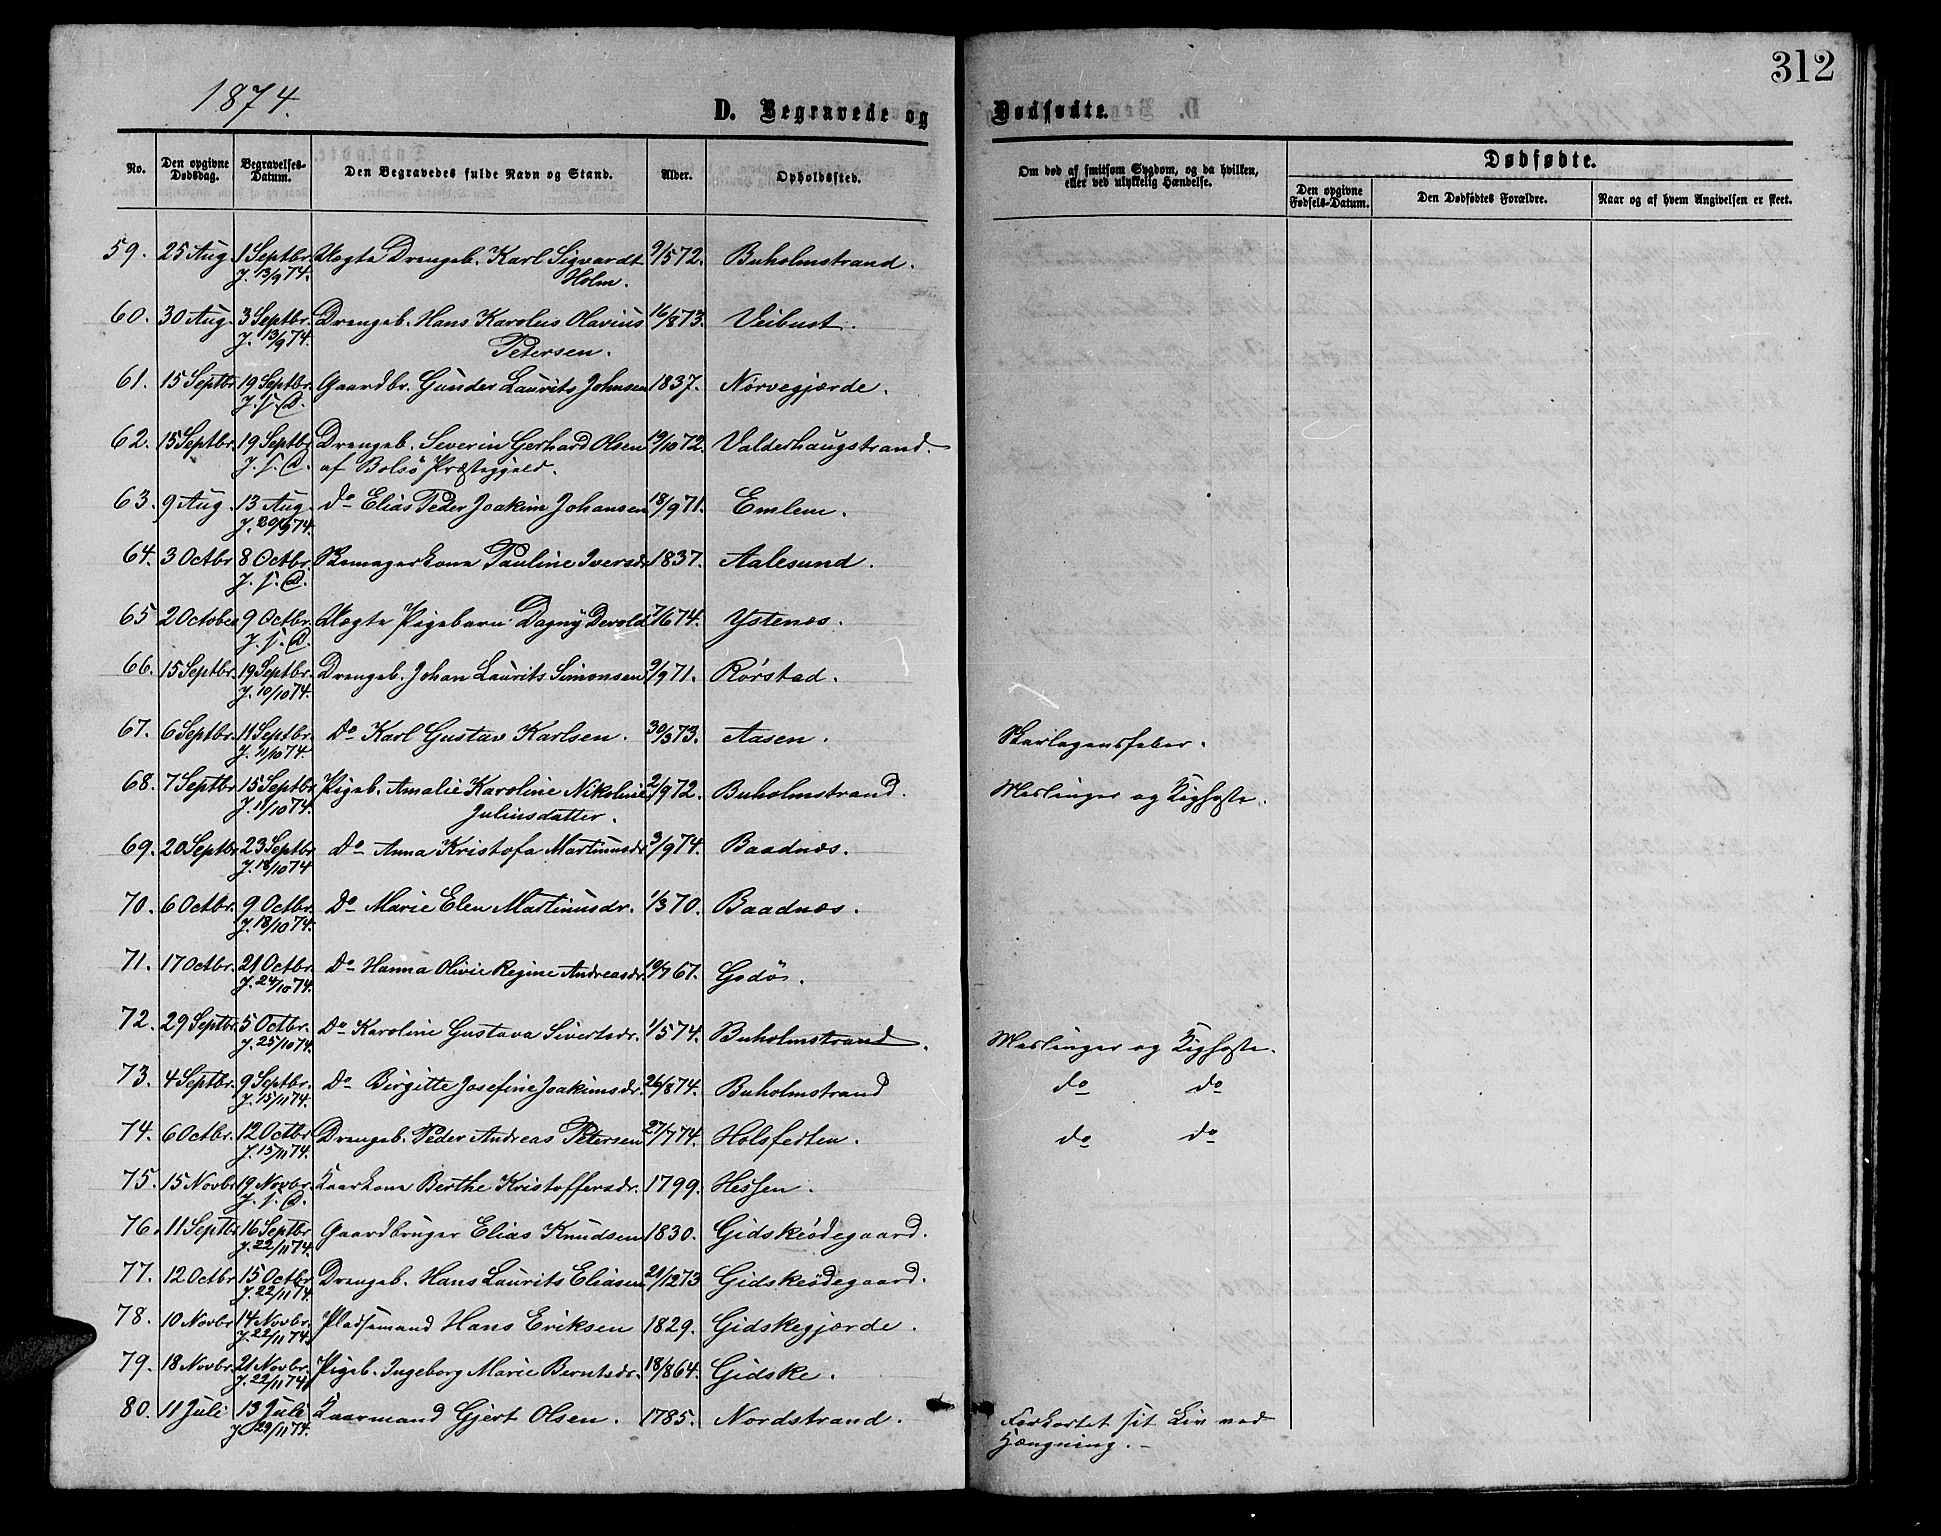 312
1874.
D. Begravede og Dødfødte.
No. Den opgivne Dødsdag. Begravelses-Datum. Den Begravedes fulde Navn og Stand. Alder. Opholdssted. Om død af smitsom Sygdom, og da hvilken, eller ved ulykkelig Hændelse. Dødfødte.
Den opgivne Fødsels-Datum. Den Dødfødtes Forældre. Naar og af hvem Angivelsen er skeet.
59. 25 Aug 1 Septbr. Uægte Drengeb. Karl Sigvardt 9/5 72. Buholmstrand.
J. 13/9 74. Holm.
60. 30 Aug. 3 Septbr. Drengeb. Hans Karolus Olavius 16/8 73. Veibust.
J. 13/9 74. Petersen.
61. 15 Septbr 19 Septbr. Gaardbr. Gunder Laurits Johnsen 1837. Nörvegjærde.
J. f. D.
62. 15 Septbr. 19 Septbr Drengeb. Severin Gerhard Olsen 19/10 72. Valderhaugstrand.
J. f. D. af Bolsö Præstegjeld.
63. 9 Aug. 13 Aug. do Elias Peder Joakim Johansen 18/9 71. Emlem.
J. 20/9 74.
64. 3 Octbr 8 Octbr. Skomagerkone Pauline Iversdr. 1837. Aalesund.
J. f. D.
65 2 October 9 Octbr. Uægte Pigebarn Dagny Devold 7/6 74. Ystenæs.
J. f. D.
66. 15 Septbr. 19 Septbr. Drengeb. Johan Laurits Simonsen 9/9 71. Rörstad.
J. 10/10 74.
67. 6 Septbr. 11 Septbr. Do Karl Gustav Karlsen. 30/3 73. Aasen. Skarlagensfeber.
J. 11/10 74.
68. 7 Septbr 15 Septbr. Pigeb. Amalie Karoline Nikoline 2/9 72. Buholmstrand. Meslinger og Kighoste.
J. 11/10 74. Juliusdatter.
69. 20 Septbr 23 Septbr Do Anna Kristofa Martinusdr. 3/9 74. Baadnæs.
J. 18/10 74
70. 6 Octbr. 9 Octbr. Do Marie Elen Martinusdr. 1/3 70. Baadnæs.
J. 18/10 74.
71. 17 Octbr. 21 Octbr. Do Hanna Olivie Regine Andreasdr. 19/7 67. Godö.
J. 24/10 74.
72. 29 Septbr. 5 Octbr. Do Karoline Gustava Sivertsdr. 1/5 74. Buholmstrand. Meslinger og Kighoste.
J. 25/10 74.
73. 4 Septbr. 9 Septbr. Do Birgitte Josefine Joakimsdr. 26/8 74. Buholmstrand do do
J. 15/11 74.
74. 6 Octbr. 12 Octbr Drengeb. Peder Andreas Petersen 27/7 74. Holsfedten. do do
J. 15/11 74.
75. 15 Novbr. 19 Novbr. Kaarkone Berthe Kristoffersdr. 1799. Hessen.
J. f. D.
76. 11 Septbr 16 Septbr Gaardbruger Elias Knudsen 1830. Gidskeödegaard.
J. 22/11 74.
77. 12 Octbr 15 Octbr Drengeb. Hans Laurits Eliasen 21/12 73 Gidskeödegaard.
J. 22/11 74.
78. 10 Novbr 14 Novbr. Pladsemand Hans Eriksen 1829. Gidskegjærde.
J. 22/11 74
79. 18 Novbr. 21 Novbr. Pigeb. Ingeborg Marie Berntsdr. 18/8 64. Gidske.
J. 22/11 74
80. 11 Juli 13 Juli Kaarmand Gjert Olsen. 1785. Nordstrand. Forkortet sit Liv ved
J. 29/11 74. Hængning.